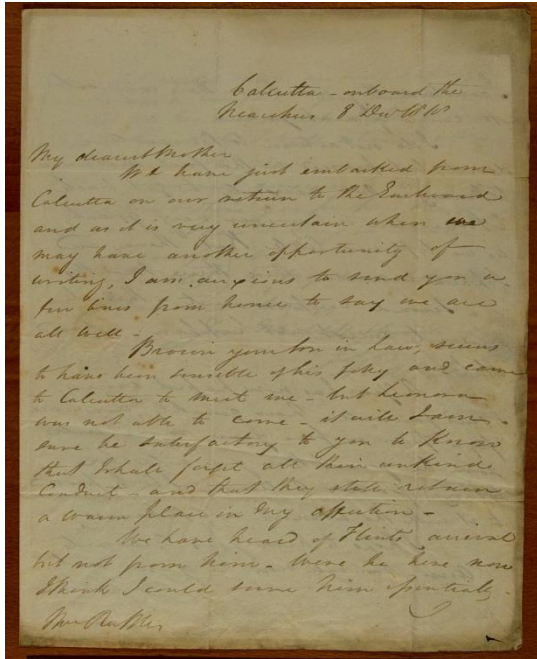 Calcutta - onboard the
Nearchus 8 Decr 18
My dearest Mother
We have just embarked from
Calcutta on our return to the Eastward
and as it is very uncertain when we
may have another opportunity of
writing, I am anxious to send you a
few lines from hence to say we are
all well -
Brown your Son in Law, seems
to have been sensible of his folly and came
to Calcutta to meet me - but Leonora
was not able to come - it will I am
sure be satisfactory to you to know
that I shall forget all their unkind
Conduct - and that they still retain
a warm place in my affection -
We have heard of Flints arrival
but not from him - Were he here now
I think I could serve him essentially -
Mrs Raffles